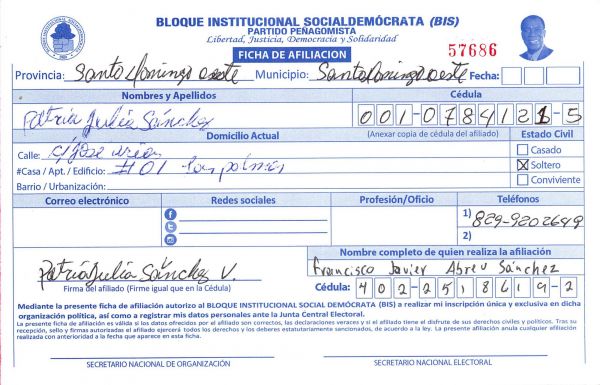 BLOQUE INSTITUCIONAL SOCIALDEMÓCRATA (BIS)
PARTIDO PEÑAGOMISTA
Libertad, Justicia, Democracia y Solidaridad
FICHA DE AFILIACION
57686
Provincia: Santo Domingo oeste Municipio: Santo Domingo oeste Fecha:
Nombres y Apellidos Cédula
Patria Julia Sánchez 001-0784121-5
Domicilio Actual (Anexar copia de cédula del afiliado) Estado Civil
Calle: C/ Jose Casado
#Casa / Apt. / Edificio: #01 Las palmas Soltero
Barrio / Urbanización: Conviviente
Correo electrónico Redes sociales Profesión/Oficio Teléfonos
1) 829-9202649
2)
Nombre completo de quien realiza la afiliación
Patria Julia Sánchez V. Francisco Javier Abreu Sánchez
Firma del afiliado (Firme igual que en la Cédula) Cédula: 402-2518619-2
Mediante la presente ficha de afiliación autorizo al BLOQUE INSTITUCIONAL SOCIAL DEMÓCRATA (BIS) a realizar mi inscripción única y exclusiva en dicha
organización política, así como a registrar mis datos personales ante la Junta Central Electoral.
La presente ficha de afiliación es válida si los datos ofrecidos por el afiliado son correctos, las declaraciones veraces y si el afiliado tiene el disfrute de sus derechos civiles y políticos. Tras su
recepción, sello y firmas autorizadas el afiliado ejercerá todos los derechos y los deberes estatutariamente sancionados, de acuerdo a la ley. La presente afiliación anula cualquier afiliación
realizada con anterioridad a la fecha que aparece en esta ficha.
SECRETARIO NACIONAL DE ORGANIZACIÓN SECRETARIO NACIONAL ELECTORAL